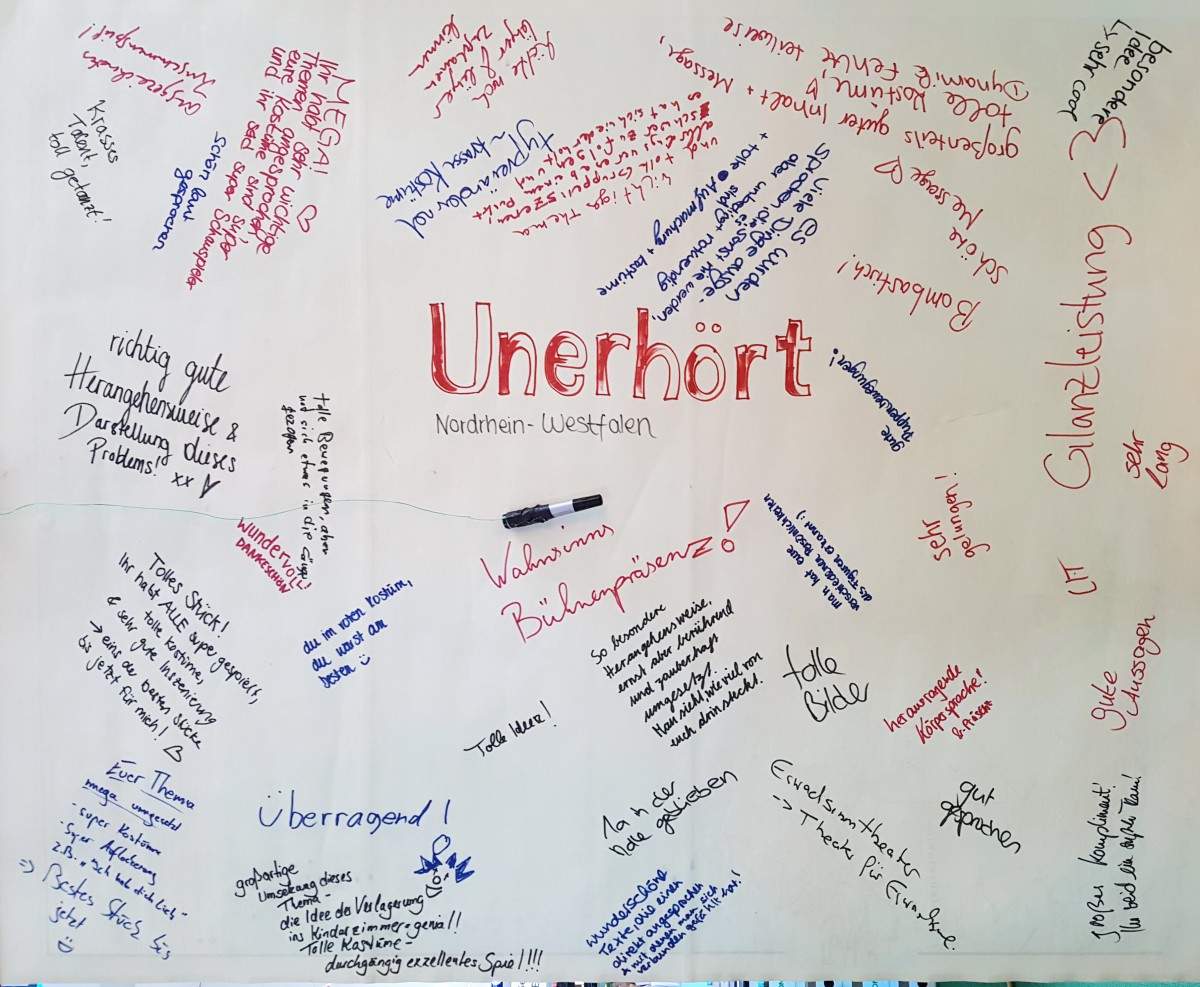 Unerhört
Nordrhein-Westfalen
ausgezeichnetes
Krasses
Talent,
toll getanzt!
Schön laut
gesprochen
MEGA! ♡
Ihr habt sehr wichtige
Themen angesprochen,
eure Kostüme sind super
und ihr seid super Schauspieler
zuhören
können
typverändernd
~ krasse Kostüme
wichtiges Thema
und tolle Gruppenszenen
es hat sich wiederholt
es wurden
viele Dinge ausge-
sprochen, die sonst nie werden,
aber unbedingt notwendig
sind
+ tolle Aufmachung + Kostüme
großenteils guter Inhalt + Message,
tolle Kostüme
Dynamik fehlte teilweise
schöne Message ♡
Bombastisch!
besondere
Idee
↳ sehr cool
Glanzleistung <3
sehr
lang
richtig gute
Herangehensweise &
Darstellung dieses
Problems! xx
tolle Bewegungen, aber
hat sich etwas in die Länge
gezogen
gute
Puppenbewegungen!
wundervoll!
DANKESCHÖN
Wahnsinns
Bühnenpräsenz!
man hat eure
verschiedenen Persönlichkeiten
als Figuren erkannt :)
sehr
gelungen!
LIT
Tolles Stück!
Ihr habt ALLE super gespielt,
tolle Kostüme,
& sehr gute Inszenierung
→ eins der besten Stücke
bis jetzt für mich!
du im roten Kostüm,
du warst am
besten
So besondere
Herangehensweise,
ernst aber berührend
und zauberhaft
umgesetzt.
Man sieht wie viel von
euch drin steckt.
tolle
Bilder
herausragende
Körpersprache!
& Präsenz
gute
Aussagen
Tolle Idee!
Euer Thema
mega umgesetzt
- super Kostüme
- super Auflockerung
z.B. „Ich hab dich lieb"
=> Bestes Stück bis
jetzt
Überragend!
großartige
Umsetzung dieses
Thema -
die Idee der Verlagerung
ins Kinderzimmer - genial!!
Tolle Kostüme -
durchgängig exzellentes Spiel!!!
In der
Rolle geblieben
wunderschöne
Texte, die einen
direkt angesprochen
& mit denen man sich
verbunden gefühlt hat!
Erwachsenentheater
--> Theater für Erwachsene.
gut
gesprochen
großes Kompliment!
Ihr seid ein super Team!